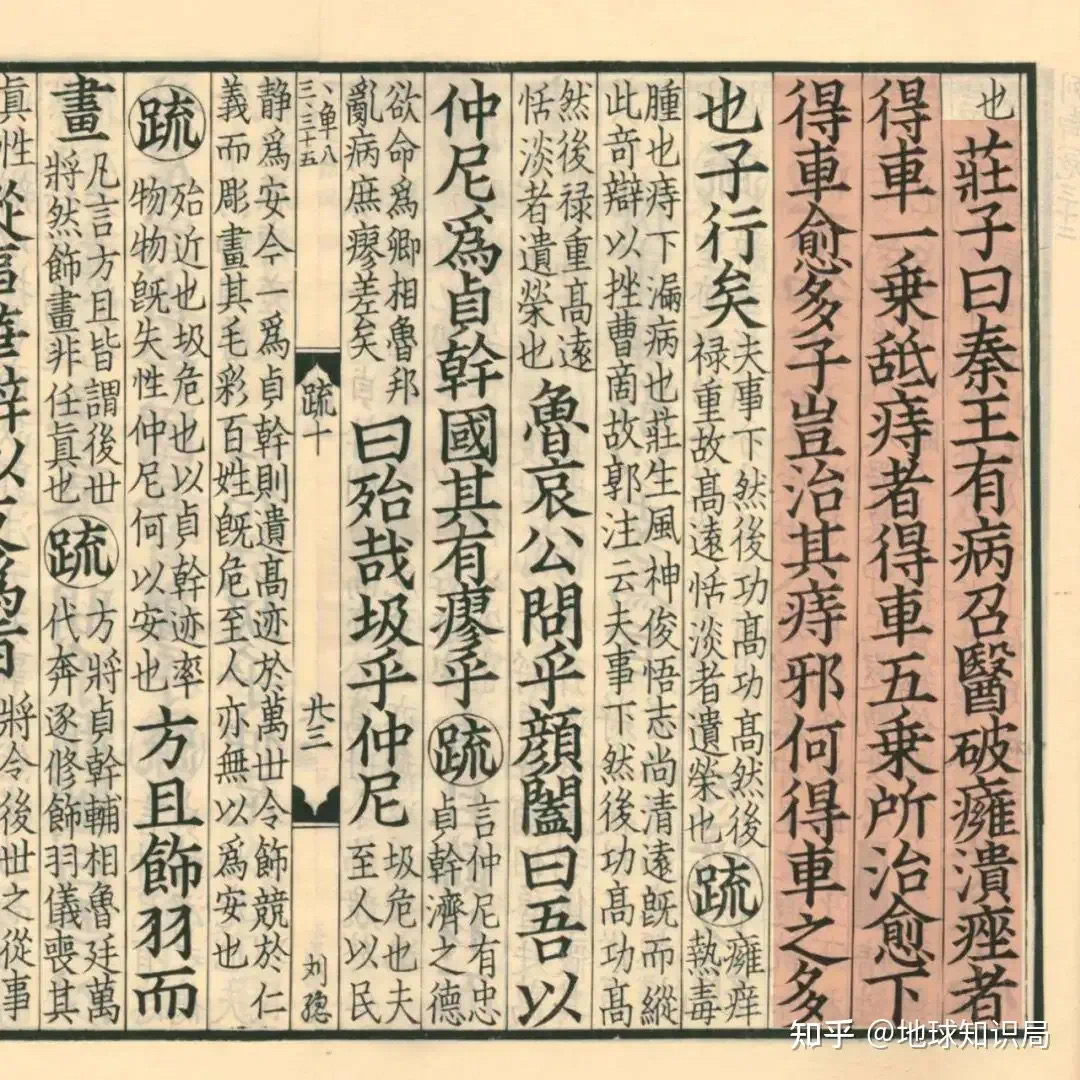 也莊子曰秦王有病召醫破癰潰痤者
得車一乗舐痔者得車五乗所治愈下
得車愈多子豈治其痔邪何得車之多
也子行矣
夫事下然後功高功高然後
禄重故高遠恬淡者遺榮也
疏
癰痒
熱毒
腫也痔下漏病也莊生風神俊悟志尚清遠旣而縱
此奇辯以挫曹商故郭注云夫事下然後功高功高
然後禄重高遠
恬淡者遺榮也
魯哀公問乎顔闔曰吾以
仲尼爲貞幹國其有瘳乎
疏
言仲尼有忠
貞幹濟之德
欲命爲卿相魯邦
亂病庶瘳差矣
曰殆哉圾乎仲尼
圾危也夫
至人以民
疏十
廿三
静爲安今一爲貞幹則遺高迹於萬世令飾競於仁
義而彫畫其毛彩百姓旣危至人亦無以爲安也
疏
殆近也圾危也以貞幹迹率
物物旣失性仲尼何以安也
方且飾羽而
畫
凡言方且皆謂後世
將然飾畫非任真也
疏
方將貞幹輔相魯廷萬
代奔逐修飾羽儀喪其
真性
將令後世之從事
知乎 @地球知识局